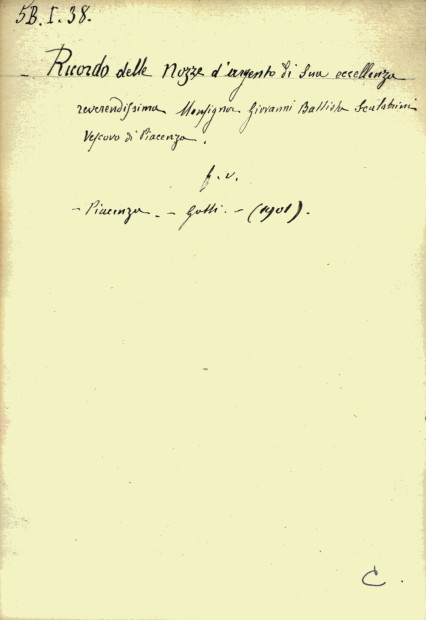 5B. I. 38.
Ricordo delle Nozze d'argento di Sua eccellenza
reverendissima Monsignor Giovanni Battista Scalabrini
Vescovo di Piacenza.
f. v.
- Piacenza. - Gotti. - (1901).
C.